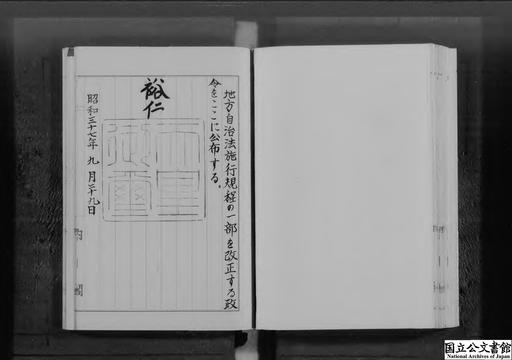 地方自治法施行規程の一部を改正する政
令をここに公布する。
裕仁
天皇
御璽
昭和三十七年九月二十九日
内閣
国立公文書館
National Archives of Japan